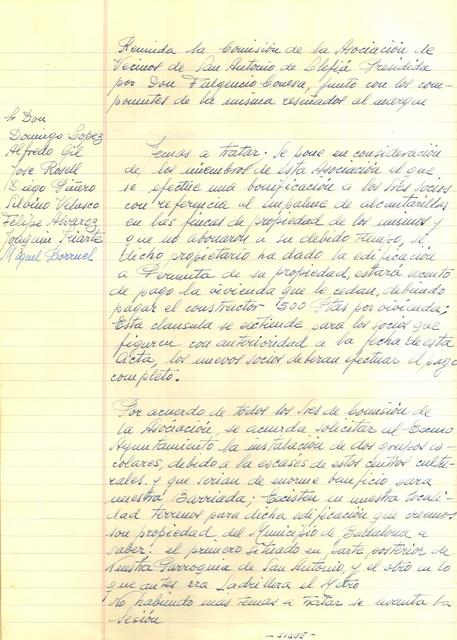 Reunida la Comisión de la Asociación de
Vecinos de San Antonio de Llefiá Presidida
por Don Fulgencio Conesa, junto con los com-
ponentes de la misma reseñados al margen
Sr Don
Domingo López
Alfredo Gil
Jose Rosell
Diego Piñero
Silvino Velasco
Felipe Alvarez
Joaquim Iriarte
Miguel Borruel
Temas a tratar. Se pone en consideración
de los miembros de esta Asociación el que
se efectue una bonificación a los Sres Socios
con referencia al empalme de alcantarillas
en las fincas de propiedad de los mismos y
que no abonaron a su debido tiempo, si
dicho propietario ha dado la edificación
a Permuta de su propiedad, estará exento
de pago la vivienda que le cedan, debiendo
pagar el constructor 1500 Ptas por vivienda;
Esta clausula se extiende para los socios que
figuren con anterioridad a la fecha de esta
Acta, los nuevos socios deberan efectuar el pago
completo.
Por acuerdo de todos los Sres de Comisión de
la Asociación, se acuerda solicitar al Excmo
Ayuntamiento la instalación de dos grupos es-
colares, debido a la escases de estos centros cultu-
rales y que serian de enorme beneficio para
nuestra Barriada; Existen en nuestra locali-
dad terrenos para dicha edificación que creemos
son propiedad del Municipio de Badalona a
saber: el primero situado en parte posterior de
nuestra Parroquia de San Antonio, y el otro en lo
que antes era Ladrillera el Metro
No habiendo mas temas a tratar se levanta la
Sesión
- SIGUE -